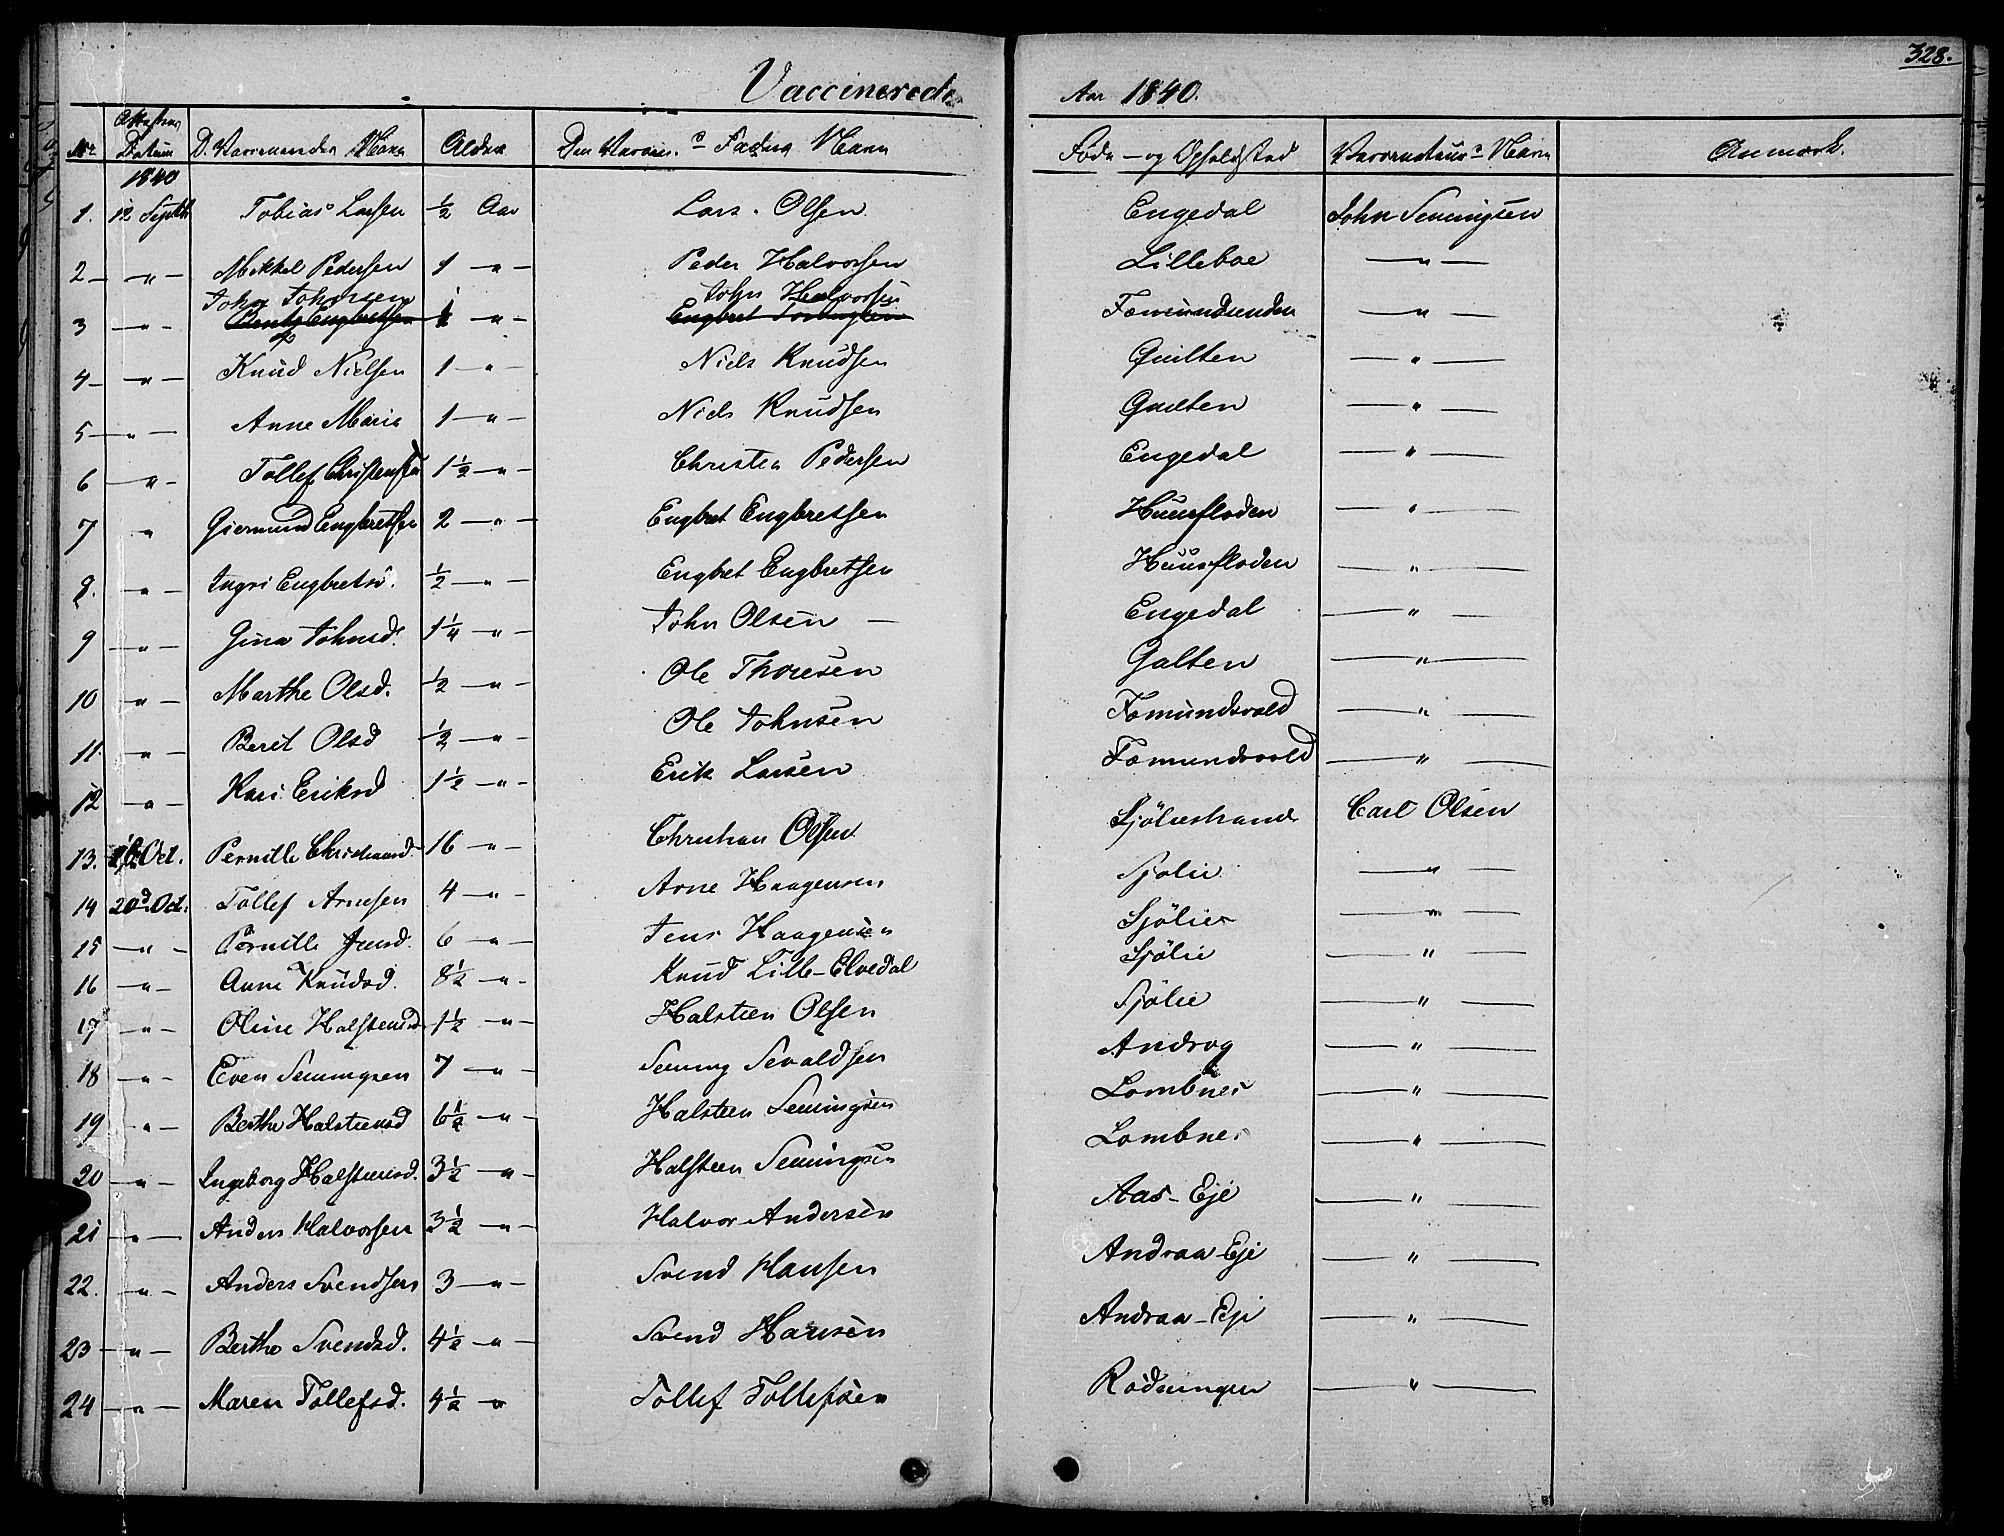 328.
Vaccinerede Aar 1840.
No Attestens Datum D. Vaccinerendes Navn Alder Den Vaccin. Faders Navn Føde- og Opholdsted Vaccinateurs Navn Anmærk.
1840
1. 12 Septbr Tobias Larsen ½ Aar Lars Olsen Engedal John Semingsen
2 — " — Mekkel Pedersen 1 — " — Peder Halvorsen Lilleboe — " —
John Johnsen John Halvorsen
3 — " — Engbretsen — " — Engbret Fæmundsenden — " —
4 — " — Knud Nielsen 1 — " — Niels Knudsen Quilten — " —
5 — " — Anne Marie 1 — " — Niels Knudsen — " —
6 — " — Tollef Christensen 1½ — " — Christen Pedersen Engedal — " —
7 " Giermund Engbretsen 2 — " — Engbret Engbretsen Huusfloden — " —
8. — " — Ingri Engbretsd. ½ — " — Engbret Engbretsen Huusfloden — " —
9 — " — Gina Johnsd. 1¼ — " — John Olsen — Engedal — " —
10 — " — Marthe Olsd. ½ — " — Ole Thoresen Galten — " —
11. — " — Berit Olsd ½ — " — Ole Johnsen Fæmundsvold — " —
12 — " — Kari Eriksd 1½ — " — Erik Larsen Fæmundsvold — " —
13. Oct. Pernille Christiansd. 16 — " — Christian Olsen Sjöliestrand Carl Olsen
14 20d. Oct. Tollef Arnesen 4 — " — Arne Haagensen Sjölie — " —
15 — " — Pernille Jensd. 6 — " — Jens Haagensen Sjölie — " —
16 — " — Anne Knudsd. 8½ — " — Knud Lille-Elvedal Sjölie — " —
17 — " — Oline Halsteensd. 1½ — " — Halsteen Olsen Sjölie — " —
18 — " — Even Semingsen 7 — " — Seming Sevaldsen Androg — " —
19 — " — Berthe Halsteensd 6½ — " — Halsteen Semingsen Lombnes — " —
20 — " — Ingeborg Halsteensd. 3½ — " — Halsteen Semingsen Lombnes — " —
21 — " — Anders Halvorsen 3½ — " — Halvor Andersen Aas-Eje — " —
22. — " — Anders Svendsen 3 — " — Svend Hansen Andraa-Eje — " —
23 — " — Berthe Svendsd. 4½ — " — Svend Hansen Andraa-Eje — " —
24 — " — Maren Tollefsd. 4½ " Tollef Tollefsen Rödningen — " —